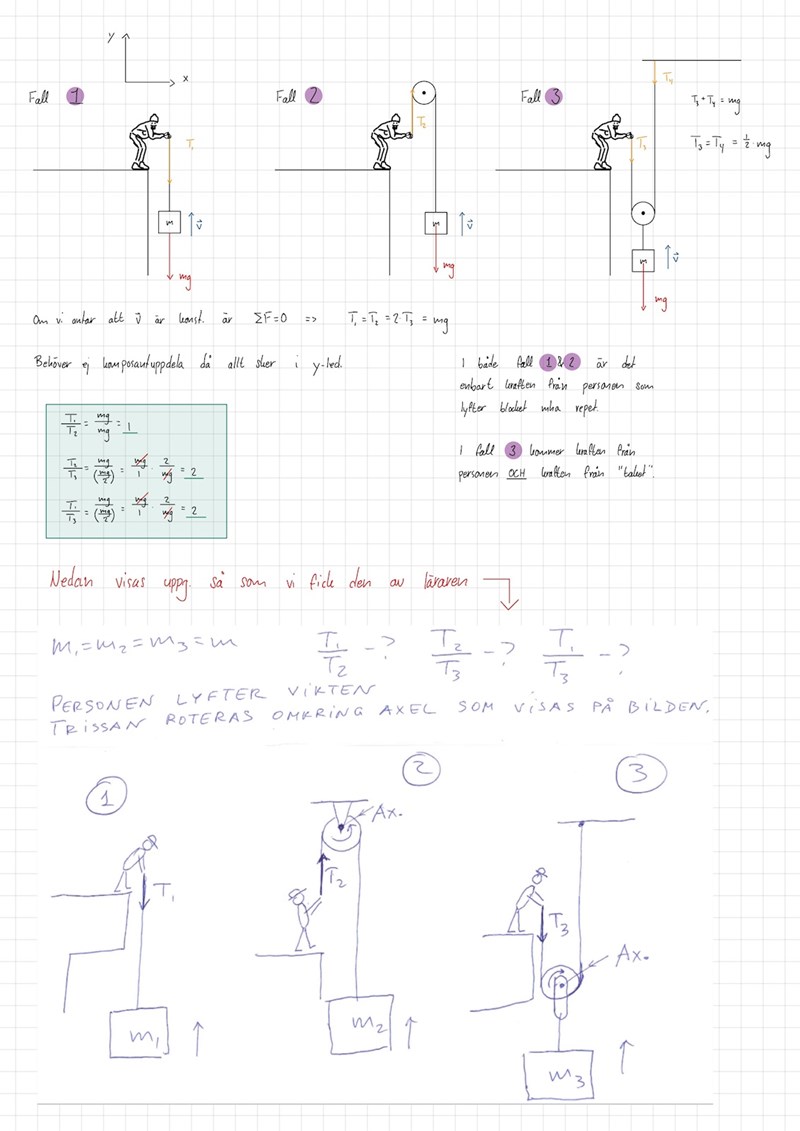 y
x
Fall 1
Fall 2
Fall 3
T₁
T₂
T₃
T₄
T₃ + T₄ = mg
T₃ = T₄ = 1/2 · mg
m
v⃗
mg
m
v⃗
mg
m
v⃗
mg
Om vi antar att v⃗ är konst. är ΣF=0 => T₁ = T₂ = 2·T₃ = mg
Behöver ej komposantuppdela då allt sker i y-led.
T₁/T₂ = mg/mg = 1
T₂/T₃ = mg/(mg/2) = mg/1 · 2/mg = 2
T₁/T₃ = mg/(mg/2) = mg/1 · 2/mg = 2
I både fall 1 & 2 är det
enbart kraften från personen som
lyfter blocket mha repet.
I fall 3 kommer kraften från
personen OCH kraften från "taket".
Nedan visas uppg. så som vi fick den av läraren
m₁=m₂=m₃=m T₁/T₂ -? T₂/T₃ -? T₁/T₃ -?
PERSONEN LYFTER VIKTEN
TRISSAN ROTERAS OMKRING AXEL SOM VISAS PÅ BILDEN.
1
2
3
Ax.
T₁
T₂
T₃
Ax.
m₁
m₂
m₃